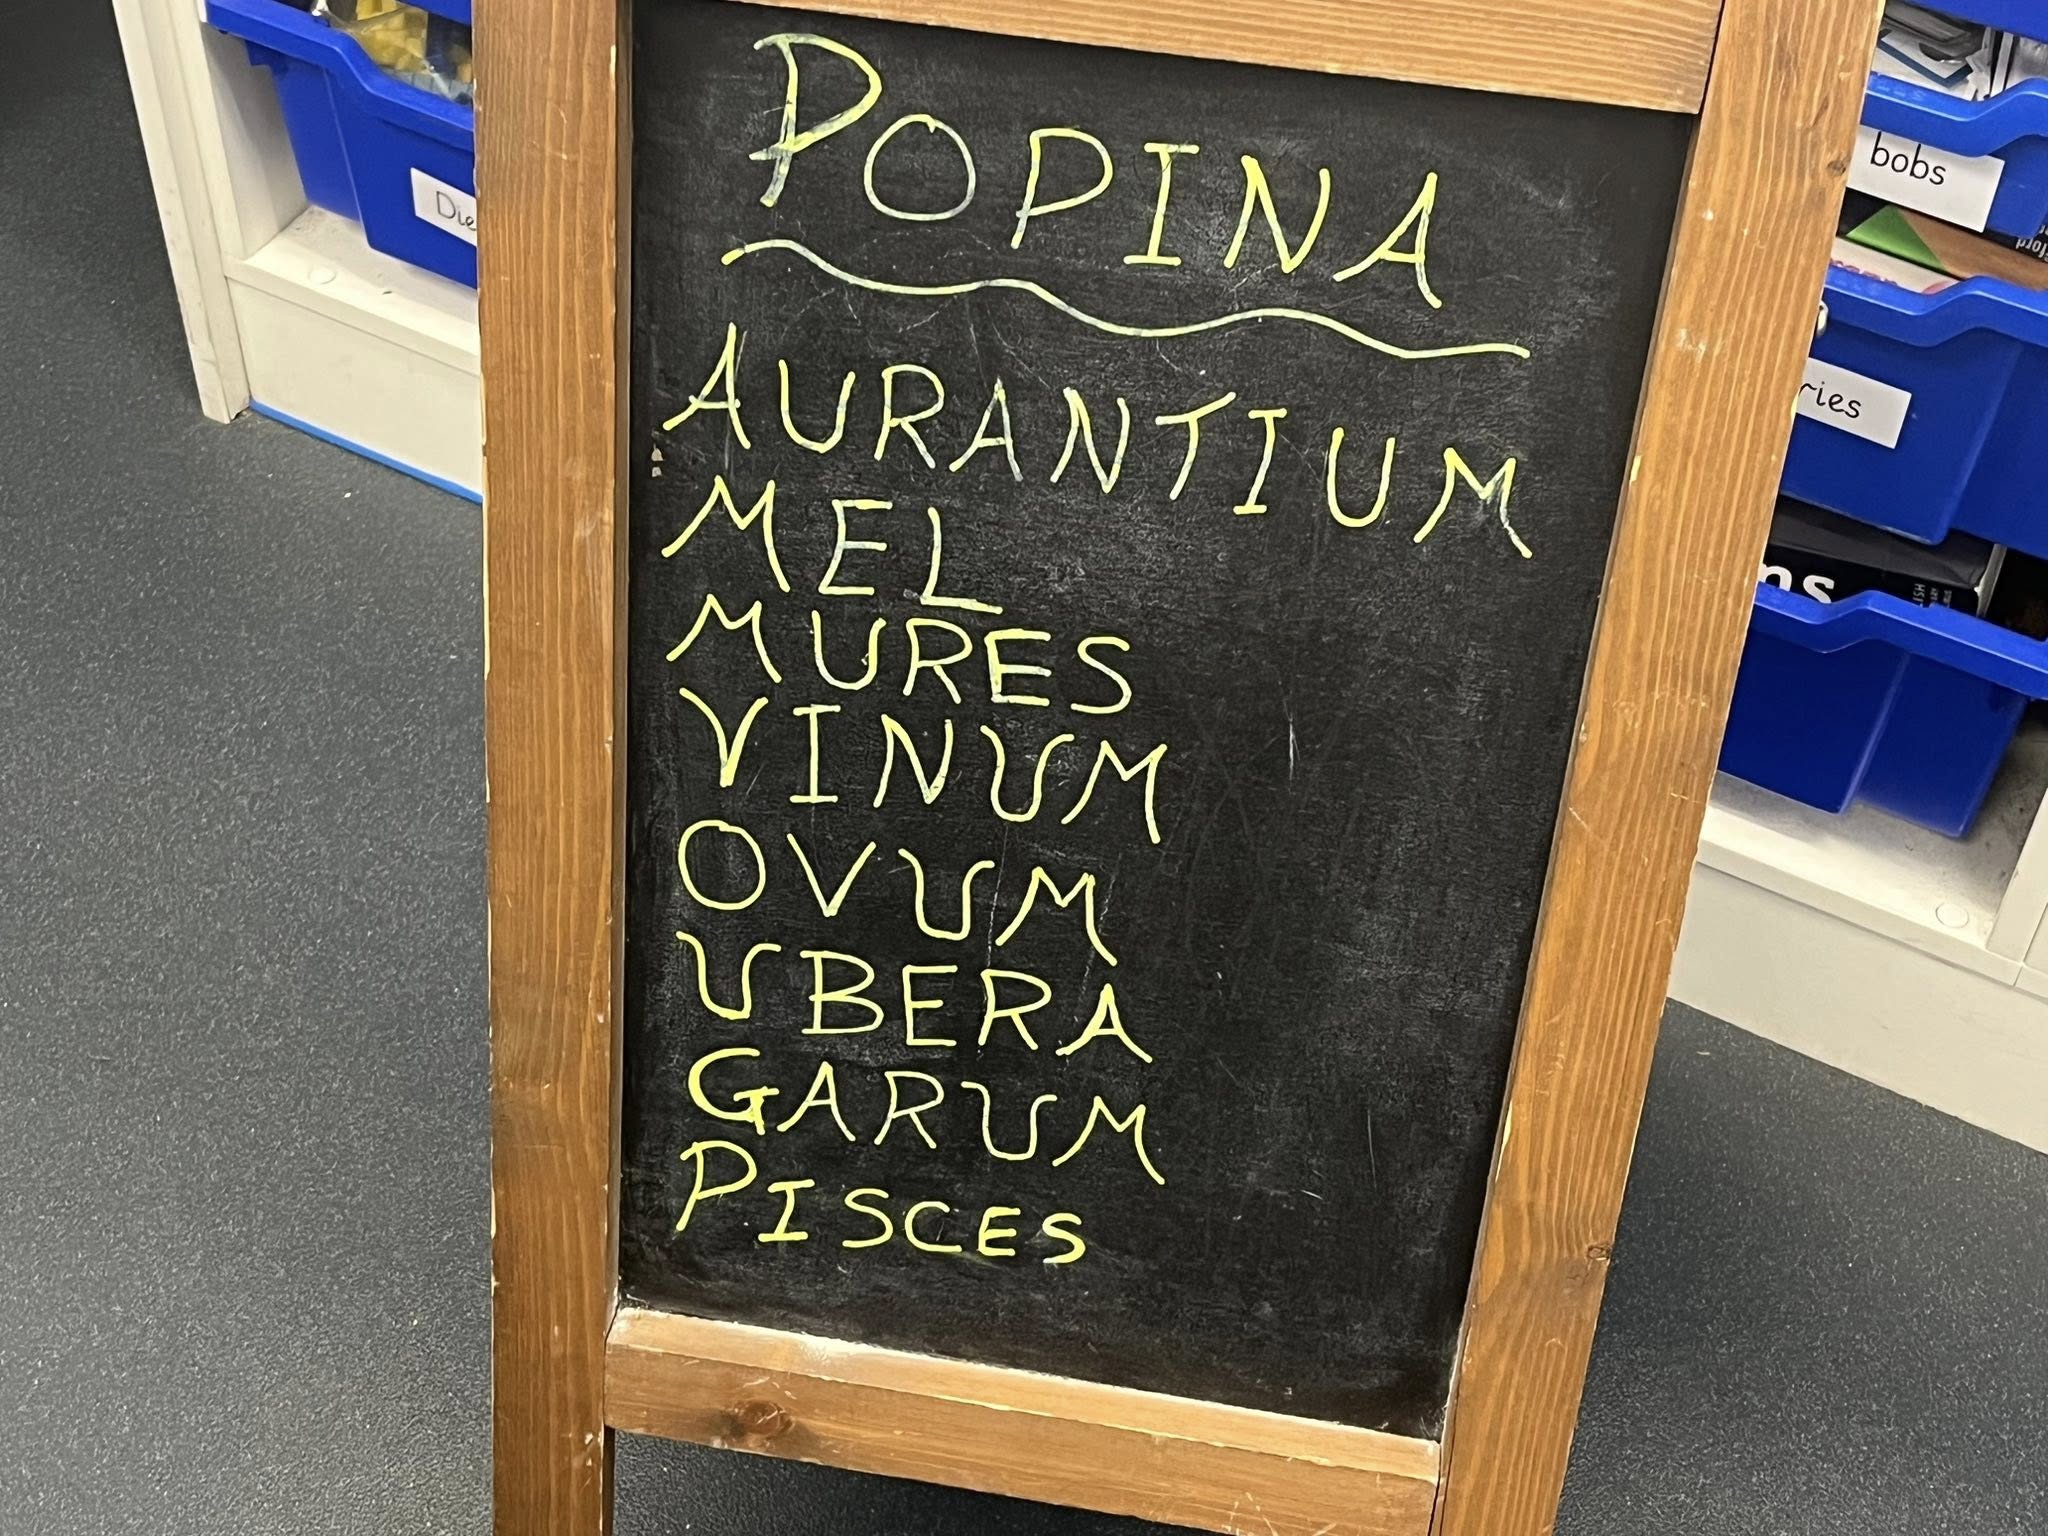 POPINA
AURANTIUM
MEL
MURES
VINUM
OVUM
UBERA
GARUM
PISCES
bobs